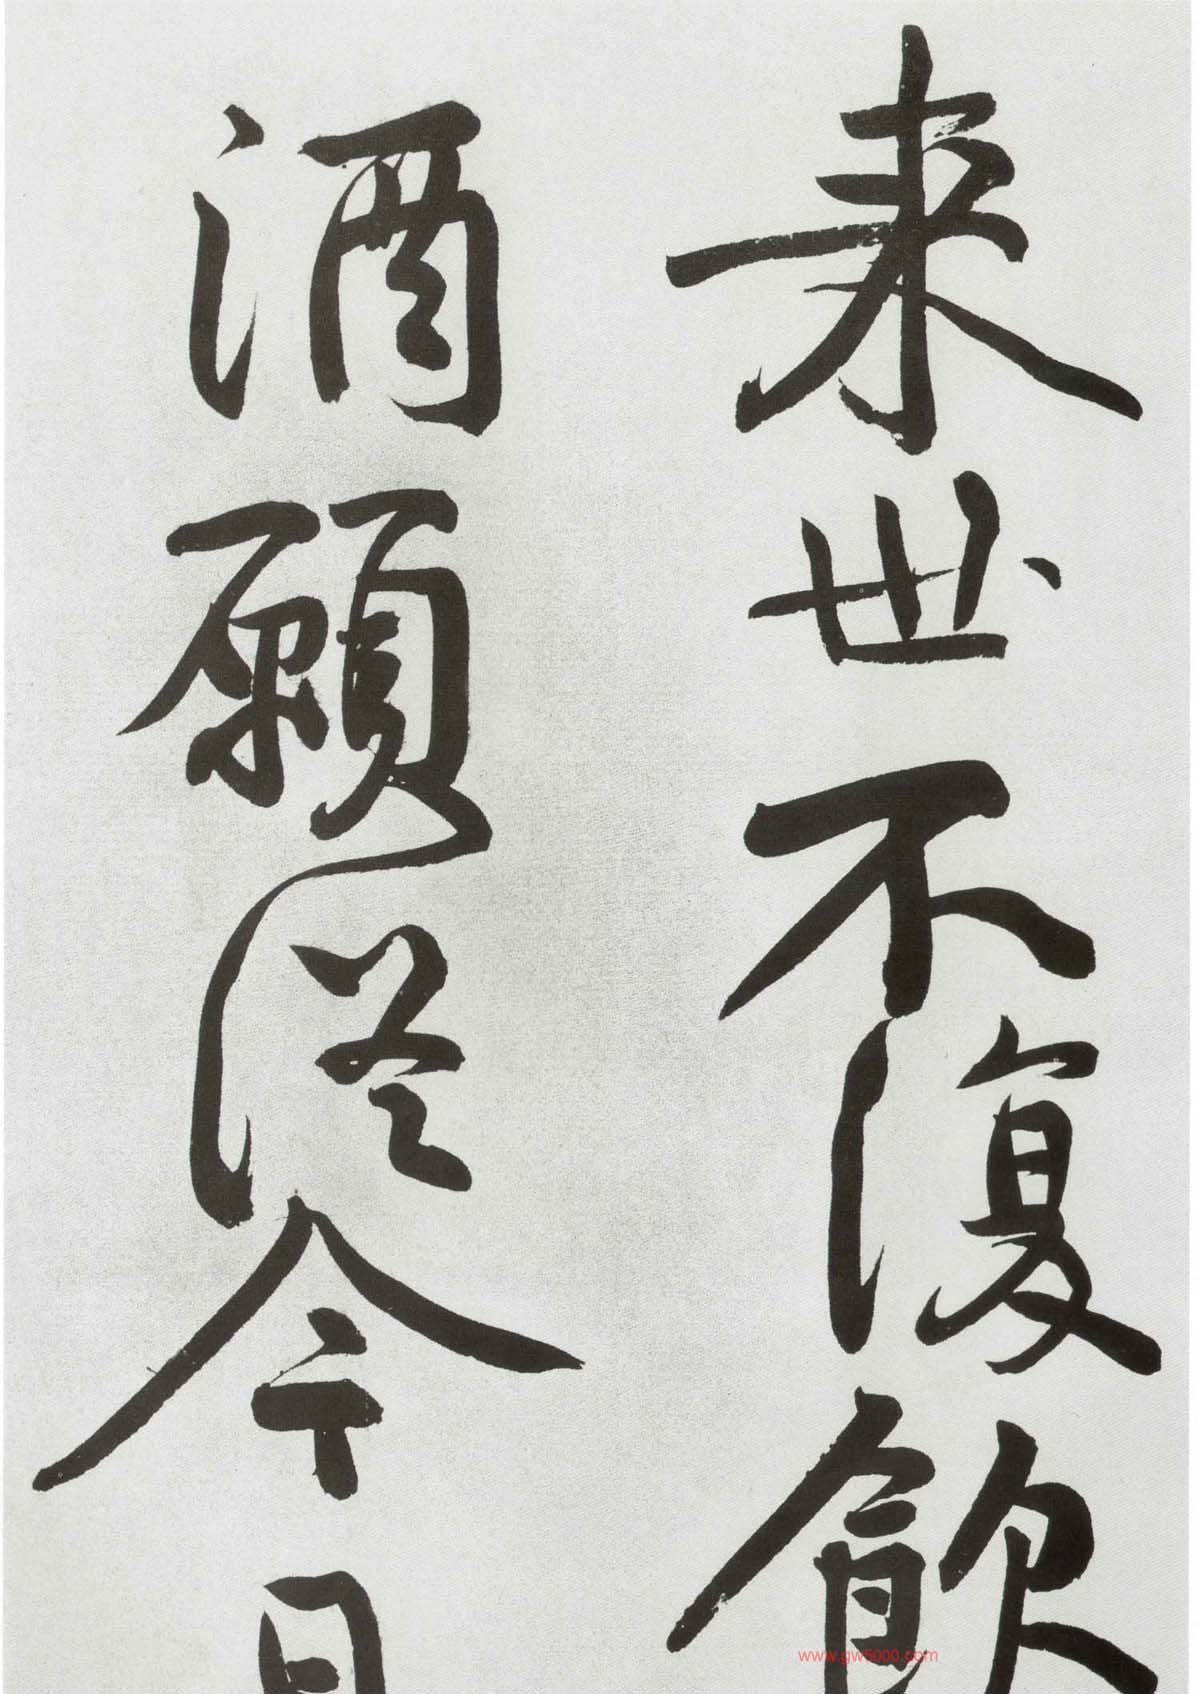 来世不復飲
酒願從今日
www.gw5000.com